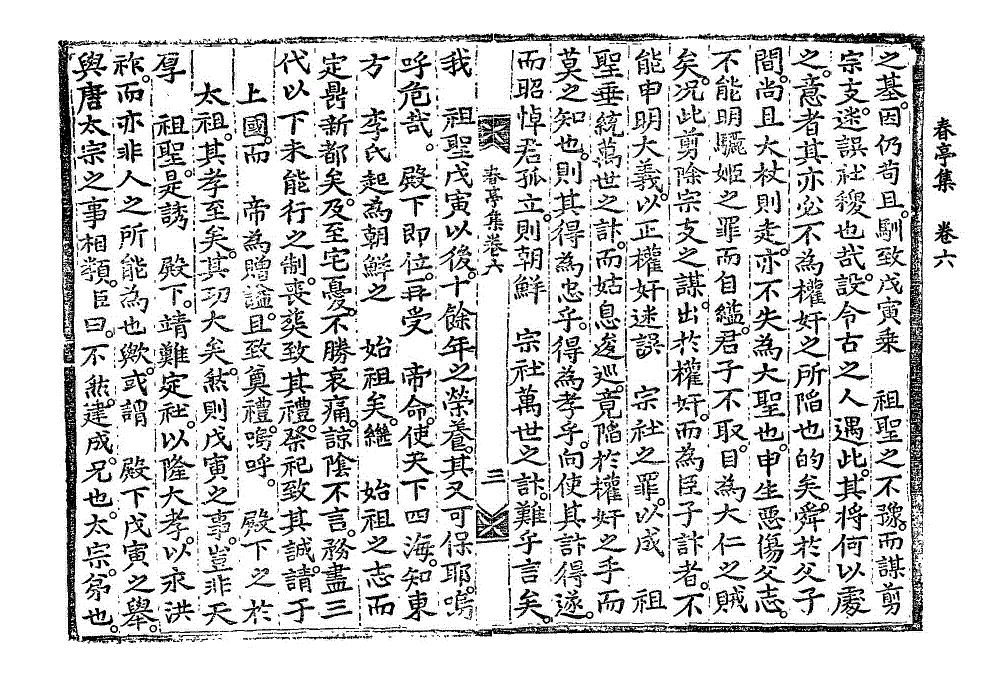 春亭集 卷六
之基。因仍苟且。馴致戊寅乘 祖聖之不豫。而謀剪
宗支。迷誤社稷也哉。設令古之人遇此。其將何以處
之。意者其亦必不爲權奸之所陷也的矣。舜於父子
間。尙且大杖則走。亦不失爲大聖也。申生恐傷父志。
不能明驪姬之罪而自縊。君子不取。目爲大仁之賊
矣。况此剪除宗支之謀。出於權奸。而爲臣子計者。不
能申明大義。以正權奸迷誤 宗社之罪。以成 祖
聖垂統萬世之計。而姑息逡巡。竟陷於權奸之手而
莫之知也。則其得爲忠乎。得爲孝乎。向使其計得遂。
而昭悼君孤立。則朝鮮 宗社萬世之計。難乎言矣。
春亭集卷六 三
我 祖聖戊寅以後。十餘年之榮養。其又可保耶。嗚
呼危哉。 殿下卽位。再受 帝命。使天下四海。知東
方 李氏起爲朝鮮之 始祖矣。繼 始祖之志而
定鼎新都矣。及至宅憂。不勝哀痛。諒陰不言。務盡三
代以下未能行之制。喪葬致其禮。祭祀致其誠。請于
上國。而 帝爲贈謚。且致奠禮。嗚呼。 殿下之於
太祖。其孝至矣。其功大矣。然則戊寅之事。豈非天
厚 祖聖。是誘 殿下。靖難定社。以隆大孝。以永洪
祚。而亦非人之所能爲也歟。或謂 殿下戊寅之擧。
與唐太宗之事相類。臣曰。不然。建成。兄也。太宗。弟也。